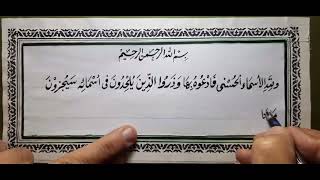 بِسْمِ اللهِ الرَّحْمٰنِ الرَّحِيْمِ
وَلِلّٰهِ الْاَسْمَاءُ الْحُسْنٰى فَادْعُوْهُ بِهَا وَذَرُوا الَّذِيْنَ يُلْحِدُوْنَ فِىْ اَسْمَائِهٖ سَيُجْزَوْنَ